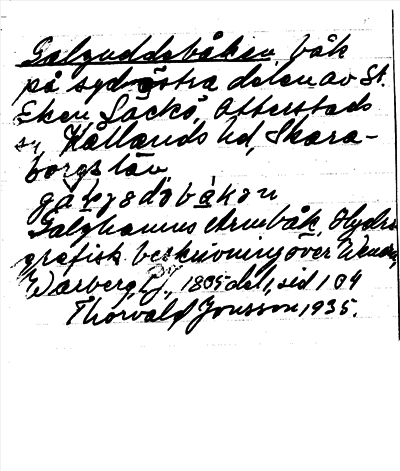 Galguddsbåken, båk
på sydöstra delen av St.
Eken, Läckö, Otterstads
sn, Kållands hd, Skara-
borgs län
Galghamns Armbåk, Hydro
grafisk beskrivning över Wenern,
Warberg, CJ., 1805 del 1, sid 104
Thorvald Jonsson 1935.